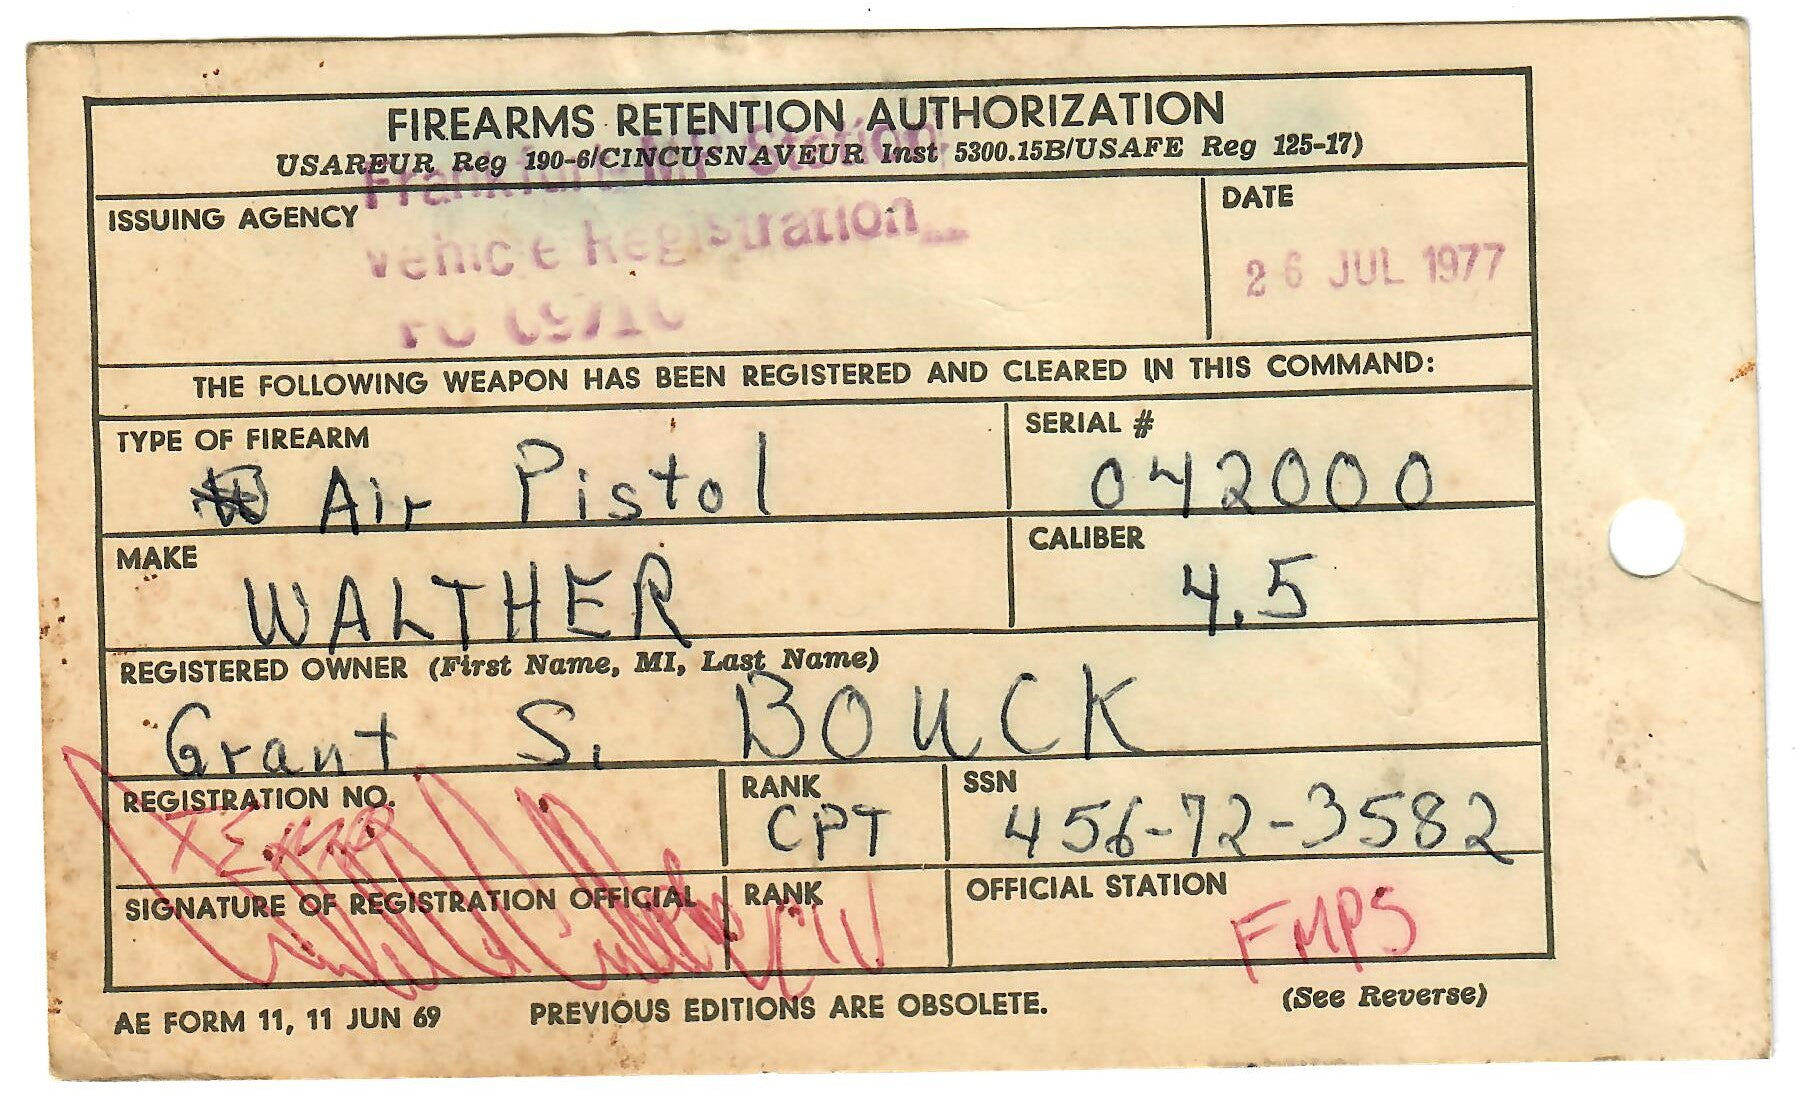 FIREARMS RETENTION AUTHORIZATION
USAREUR Reg 190-6/CINCUSNAVEUR Inst 5300.15B/USAFE Reg 125-17)
ISSUING AGENCY
Frankfurt MP Station
Vehicle Registration
DATE
26 JUL 1977
THE FOLLOWING WEAPON HAS BEEN REGISTERED AND CLEARED IN THIS COMMAND:
TYPE OF FIREARM
Air Pistol
SERIAL #
042000
MAKE
WALTHER
CALIBER
4.5
REGISTERED OWNER (First Name, MI, Last Name)
Grant S. BOUCK
REGISTRATION NO.
RANK
CPT
SSN
456-72-3582
SIGNATURE OF REGISTRATION OFFICIAL
RANK
OFFICIAL STATION
FMPS
AE FORM 11, 11 JUN 69
PREVIOUS EDITIONS ARE OBSOLETE.
(See Reverse)